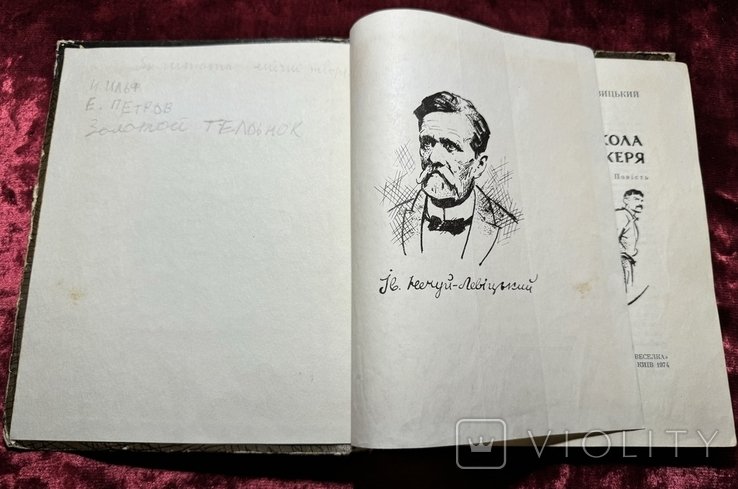 И. ИЛЬФ
Е. ПЕТРОВ
ЗОЛОТОЙ ТЕЛЬОНОК
Ів. Нечуй-Левіцький
ВИЦЬКИЙ
КОЛА
ЖЕРЯ
Повість
ВЕСЕЛКА»
КИЇВ 1974
VIOLITY